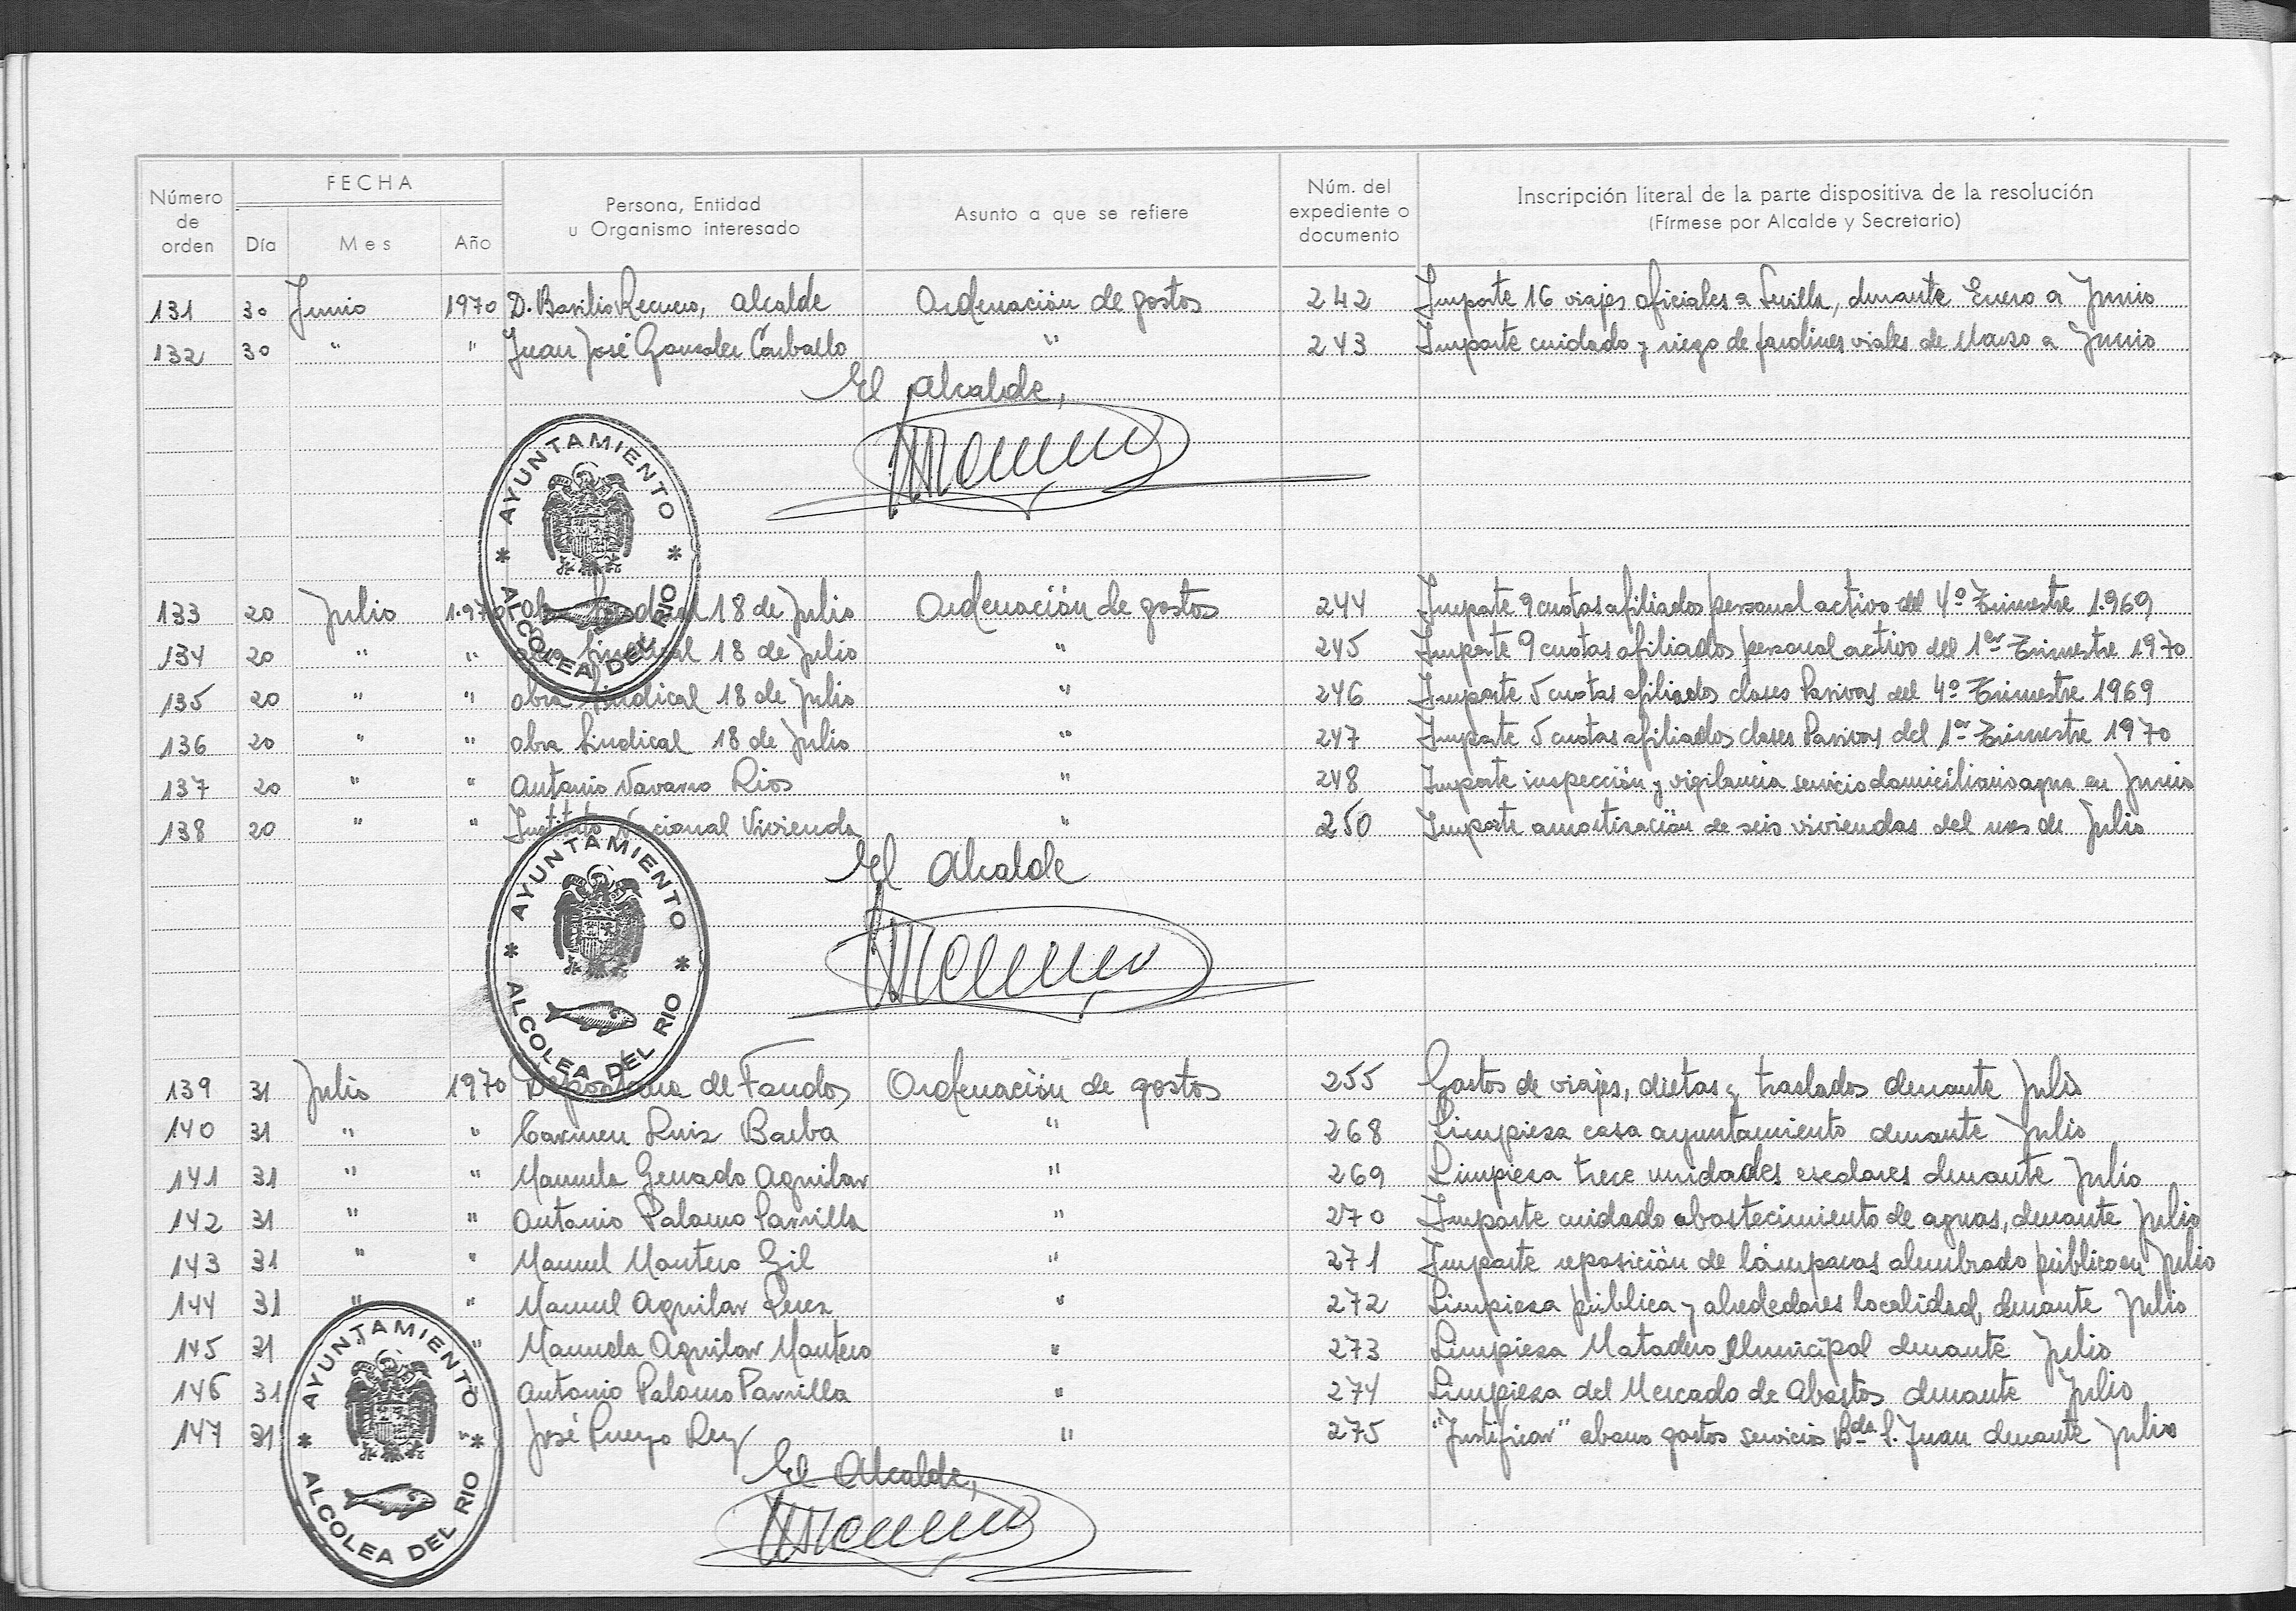 Número de orden | FECHA | Persona, Entidad u Organismo interesado | Asunto a que se refiere | Núm. del expediente o documento | Inscripción literal de la parte dispositiva de la resolución (Fírmese por Alcalde y Secretario)
Día | Mes | Año
131 30 Junio 1970 D. Basilio Recuero, Alcalde Ordenación de gastos 242 Importe 16 viajes oficiales a Sevilla, durante Enero a Junio
132 30 " " Juan José Gonzalez Carballo " 243 Importe cuidado y riego de jardines viales de Marzo a Junio
El Alcalde,
AYUNTAMIENTO
ALCOLEA DEL RIO
133 20 Julio 1.970 Obra Sindical 18 de Julio Ordenación de gastos 244 Importe 9 cuotas afiliados personal activo del 4º Trimestre 1.969
134 20 " " Obra Sindical 18 de Julio " 245 Importe 9 cuotas afiliados personal activo del 1er Trimestre 1970
135 20 " " Obra Sindical 18 de Julio " 246 Importe 5 cuotas afiliados clases Pasivas del 4º Trimestre 1969
136 20 " " Obra Sindical 18 de Julio " 247 Importe 5 cuotas afiliados clases Pasivas del 1er Trimestre 1970
137 20 " " Antonio Navarro Rios " 248 Importe inspección y vigilancia servicio domiciliario agua en Junio
138 20 " " Instituto Nacional Vivienda " 250 Importe amortización de seis viviendas del mes de Julio
El Alcalde
AYUNTAMIENTO
ALCOLEA DEL RIO
139 31 Julio 1970 Depositaria de Fondos Ordenación de gastos 255 Gastos de viajes, dietas y traslados durante Julio
140 31 " " Carmen Ruiz Barba " 268 Limpieza casa ayuntamiento durante Julio
141 31 " " Manuela Aguilar " 269 Limpieza trece unidades escolares durante Julio
142 31 " " Antonio Palomo Parrilla " 270 Importe cuidado abastecimiento de aguas, durante Julio
143 31 " " Manuel Montero Gil " 271 Importe reposición de lámparas alumbrado público en Julio
144 31 " " Manuel Aguilar Perez " 272 Limpieza pública y alrededores localidad, durante Julio
145 31 " Manuela Aguilar Montero " 273 Limpieza Matadero Municipal durante Julio
146 31 Antonio Palomo Parrilla " 274 Limpieza del Mercado de Abastos durante Julio
147 31 " José Rey " 275 "Justificar" abono gastos servicio Bda. S. Juan durante Julio
El Alcalde,
AYUNTAMIENTO
ALCOLEA DEL RIO